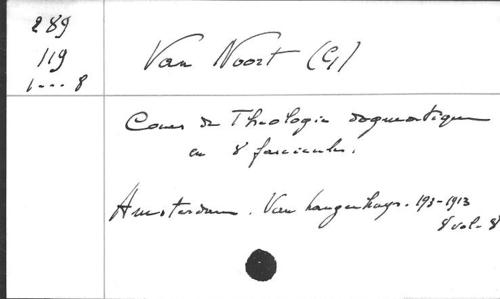 289
119
1---8
Van Noort (G)
Cours de Theologie dogmatique
en 8 fascicules.
Amsterdam. Van Langenhuys. 19 -1913
8 vol - 8